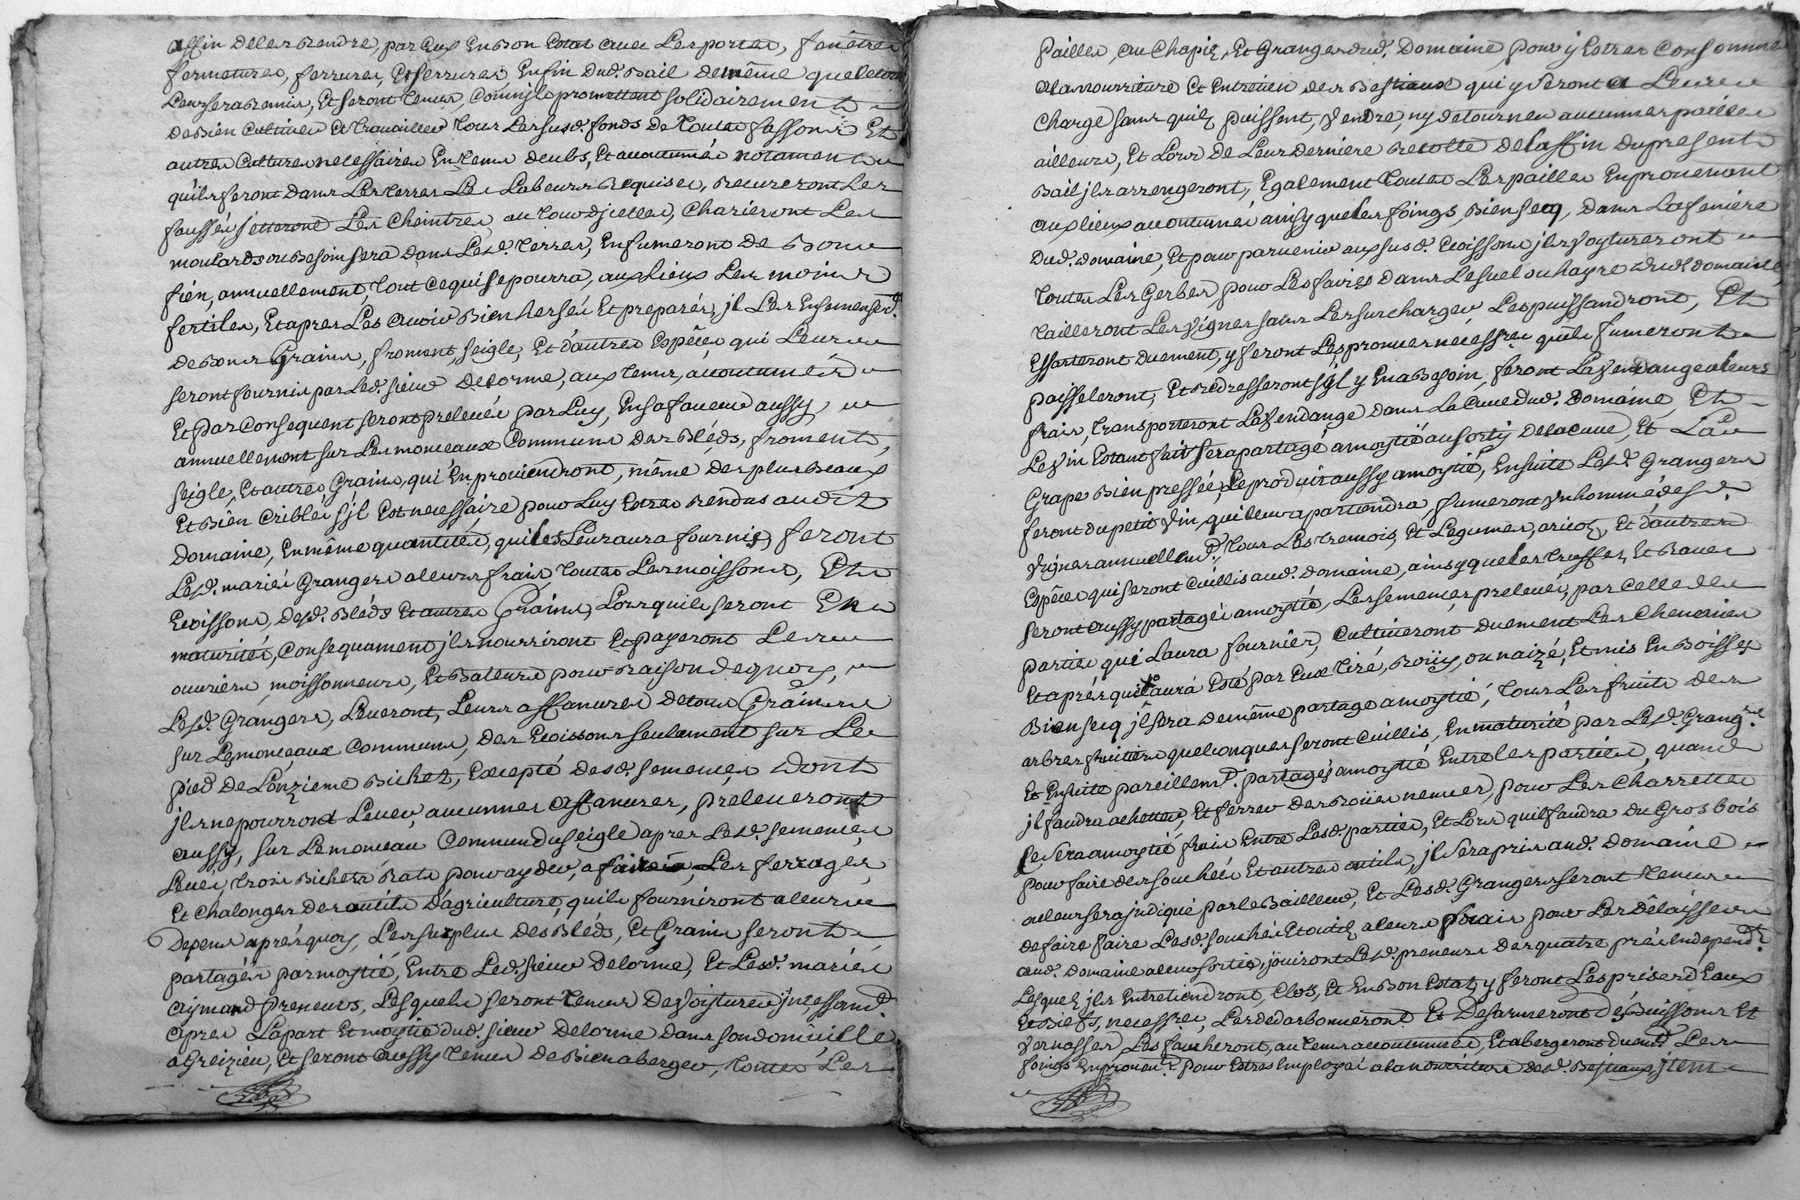 affin deles Rendre, par Eux En Bon Estat avec Les portes, fenêtres
fermetures, ferrures, Et serrures Enfin dud. Bail demême que le tout
Leur sera Remis, Et seront tenus, Comm'ils promettent solidairement
de Bien Cultiver Et travailler tous Les susd. fonds de toutes fassons Et
autres Cultures necessaires En tems deubs, Et accoutumés notament
qu'ils feront dans Les terres Les Labeurs Requises, Recureront Les
faussés, jetteront Les Cheintres au tour d'jcelles, Charieront Les
moulards ou Besoin sera dans Lesd. terres, Enfumeront de Bon
fien, annuellement, tout ce qui se pourra, aux lieux Les moins
fertiles, Et apres Les avoir Bien hersés Et preparés, jl Les Ensemenseront
de Bons Grains, froment, seigle, Et d'autres Espêces qui Leurs
seront fournis par Led. sieur Delorme, aux tems, accoutumés
Et par Consequent seront prelevés par Luy, En sa faveur aussy,
annuellement sur Les monceaux Communs des Blèds, froment,
seigle, Et autres Grains, qui En proviendront, même des plus Beaux
Et Bien Criblés s'jl Est necessaire pour Luy Estre Rendus audit
Domaine, En même quantités, qu'il Les Leur aura fournis, feront
Lesd. mariés Grangers a leurs frais toutes Les moissons, Et
Ecoissons, desd. Blèds Et autres Grains, Lors qu'ils seront En
maturités, Consequament jls nourriront Et payeront Les
ouvriers moissonneurs, Et Bateurs pour Raison de quoy,
Lesd. Grangers, Leveront, Leurs affanures de tous Grains
sur Les monceaux Communs, des Ecoissons seulement sur Le
pied de L'onzieme Bichet, Excepté desd. semences dont
jls ne pourront Lever, aucunnes affanures, preleveront
aussy, sur Le monceau Commun du seigle apres Lesd. semences
Levées, trois Bichets Rats pour ayder, a faire Les ferrages,
Et Chalonger des outils d'agriculture, qu'ils fourniront a leurs
Depens apres quoy, Les surplus des Blèds, Et Grains seront
partagés par moytié, Entre Led. sieur Delorme, Et Lesd. mariés
aymard preneurs, Lesquels seront tenus de Voiturer jncessament
apres La part Et moytié dud. sieur Delorme dans son domicille
a Greizieu, Et seront aussy tenus de Bien aberger, toutes Les
pailles, au Chapit, Et Granges dud. Domaine, pour y Estre Consommé
a la nourriture Et Entretien des Bestiaux qui y seront a Leurs
Charge sans qu'ils puissent, vendre, ny detourner aucunnes pailles
ailleurs, Et Lors de Leur derniere Recolte de la ffin du present
Bail jls arrengeront, Egalement toutes Les pailles En provenant
aux lieux accoutumés ainsy que les foings, Bien secq, dans La feniere
dud. domaine, Et pour parvenir aux susd. Ecoissons jls Voytureront
toutes Les Gerbes, pour Les faires dans Le suel ou hayre dud. domaine,
tailleront Les Vignes sans Les surcharger Les puissandront, Et
Essarteront duement, y feront Les provues necessres qu'ils fumeront
paisseleront, Et Redresseront s'jl y En a Besoin, feront La Vendange a leurs
frais, transporteront La Vendange dans La Cuve dud. Domaine, Et
Le Vin Estant fait sera partagé a moytié au sorty de la cuve, Et La
Grape Bien pressée, Le produit aussy a moytié, Ensuite Lesd. Grangers
feront du petit Vin, qui leur apartiendra, fumeront un hommé desd.
Vignes annuellemt, tous Les tremois, Et Legumes, aricoz, Et d'autres
Espêces qui seront Cuillis aud. Domaine, ainsy que les truffes, Et Raves
seront aussy partagés a moytié, Les semences prelevées, par Celle des
parties qui L'aura fournies, Cultiveront duement Les Chenevieres
Et aprés qu'il aura Esté par Eux tiré, Roüy, ou naizé, Et mis En Boisses
Bien secq jl sera de même partagé a moytié, tous Les fruits des
arbres fruitiers quelconques seront Cuillis, En maturité par Lesd. Grangrs
Et Ensuite pareillemt. partagés a moytié Entre les parties, quand
jl faudra achetter, Et ferrer des Roües neuves, pour Les Charrettes
se sera a moytié frais Entre Lesd. parties, Et Lors qu'il faudra du Gros bois
pour faire des souchées Et autres outils, jl sera pris aud. Domaine
a leur sera jndiqué par le Bailleur, Et Lesd. Grangers seront tenus
de faire faire Lesd. souchés Et outils a leurs frais pour Les Delaisser
aud. Domaine a leur sortie, jouiront Lesd. preneurs des quatre prés Independts
Lesquels jls Entretiendront, Clos, Et En Bon Estat, y feront Les prises d'Eaux
Et Biefs, necessres, Les dedarbonneront Et Desarmeront des Buissons Et
Vernasses, Les faucheront, au tems accoutumés, Et abergeront duemt Les
foings En provent. pour Estre Employés a la nourriture desd. Bestiaux, jtem